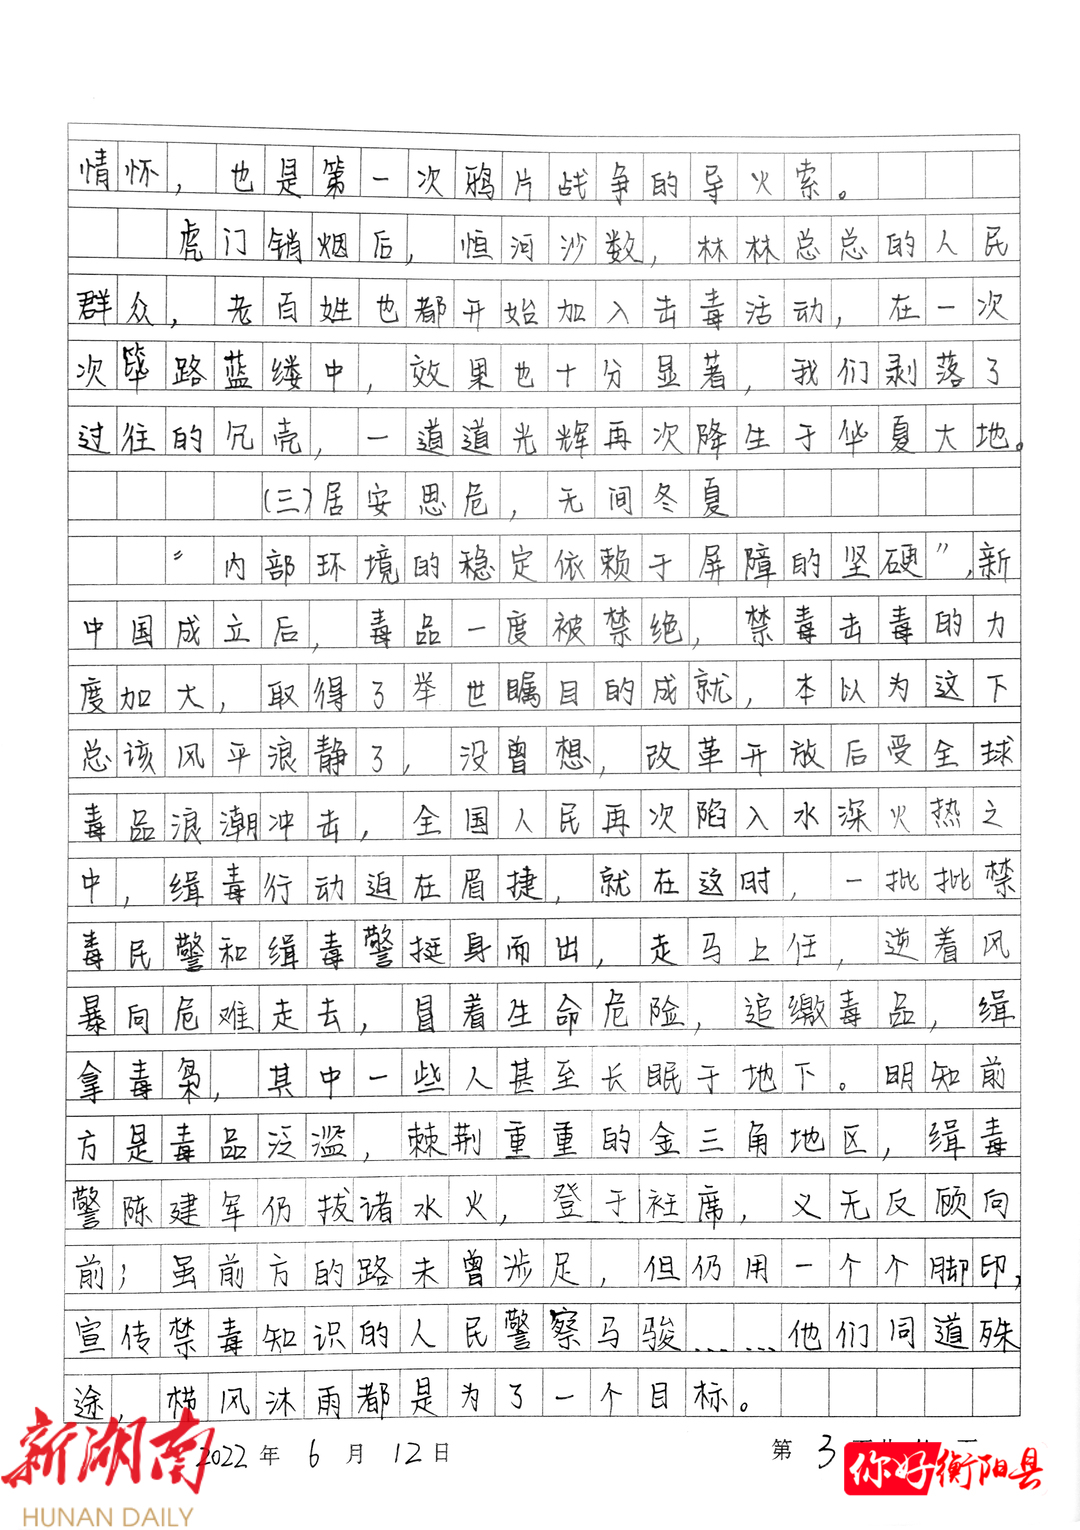 情怀，也是第一次鸦片战争的导火索。
虎门销烟后，恒河沙数，林林总总的人民
群众，老百姓也都开始加入击毒活动，在一次
次筚路蓝缕中，效果也十分显著，我们剥落了
过往的冗壳，一道道光辉再次降生于华夏大地。
(三)居安思危，无间冬夏
“内部环境的稳定依赖于屏障的坚硬”，新
中国成立后，毒品一度被禁绝，禁毒击毒的力
度加大，取得了举世瞩目的成就，本以为这下
总该风平浪静了，没曾想，改革开放后受全球
毒品浪潮冲击，全国人民再次陷入水深火热之
中，缉毒行动迫在眉捷，就在这时，一批批禁
毒民警和缉毒警挺身而出，走马上任，逆着风
暴向危难走去，冒着生命危险，追缴毒品，缉
拿毒枭，其中一些人甚至长眠于地下。明知前
方是毒品泛滥，棘荆重重的金三角地区，缉毒
警陈建军仍拔诸水火，登于衽席，义无反顾向
前；虽前方的路未曾涉足，但仍用一个个脚印，
宣传禁毒知识的人民警察马骏……他们同道殊
途，栉风沐雨都是为了一个目标。
2022年6月12日
第3
新湖南
HUNAN DAILY
你好衡阳县